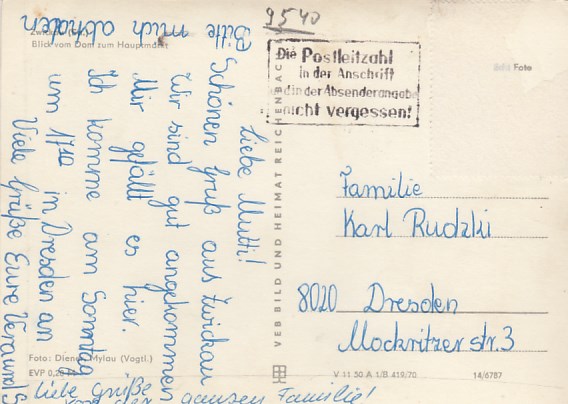 9540
Zwickau (Sa.)
Blick vom Dom zum Hauptmarkt
Die Postleitzahl
in der Anschrift
und in der Absenderangabe
nicht vergessen!
Foto
Liebe Mutti!
Schönen Gruß aus Zwickau
Wir sind gut angekommen
Mir gefällt es hier.
Ich komme am Sonntag
um 17¹⁰ in Dresden an
Viele Grüße Eure Vera und
Bitte mich abholen
Liebe Grüße
von der ganzen Familie!
VEB BILD UND HEIMAT REICHENBACH
Familie
Karl Rudzki
8020 Dresden
Mockritzer str. 3
Foto: Diener, Mylau (Vogtl.)
EVP 0,20
V 11 50 A 1/B 419/70
14/6787